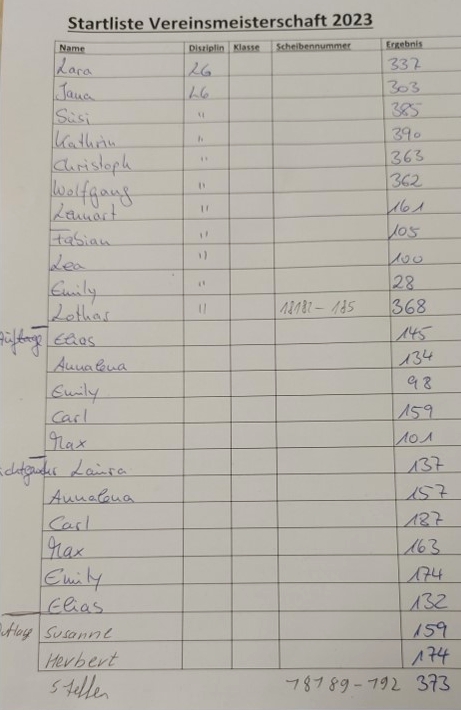 Startliste Vereinsmeisterschaft 2023
Name Disziplin Klasse Scheibennummer Ergebnis
Lara LG 337
Jana LG 303
Susi " 385
Kathrin " 390
Christoph " 363
Wolfgang " 362
Lennart " 161
Fabian " 105
Lea " 100
Emily " 28
Lothar " 18182 - 185 368
Auflage Elias 145
Annalena 134
Emily 98
Carl 159
Max 101
Laura 137
Annalena 157
Carl 187
Max 163
Emily 174
Elias 132
Auflage Susanne 159
Herbert 174
Steffen 18189-192 373